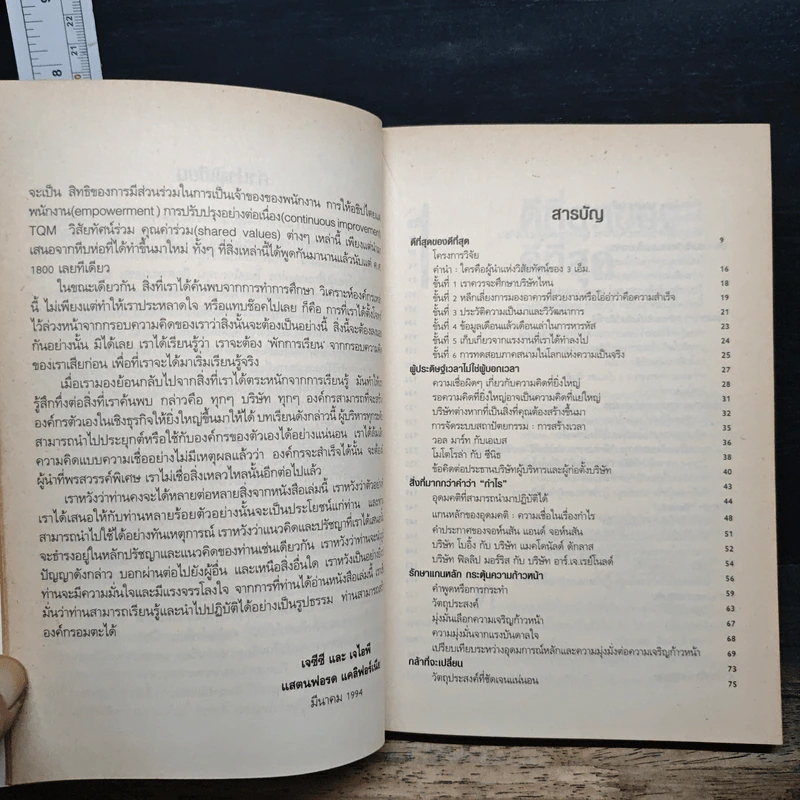 จะเป็น สิทธิของการมีส่วนร่วมในการเป็นเจ้าของของพนักงาน การให้อธิปไตยแก่
พนักงาน(empowerment) การปรับปรุงอย่างต่อเนื่อง(continuous improvement)
TQM วิสัยทัศน์ร่วม คุณค่าร่วม(shared values) ต่างๆ เหล่านี้ เพียงแต่
เสนอจากหีบห่อที่ได้ทำขึ้นมาใหม่ ทั้งๆ ที่สิ่งเหล่านี้ได้พูดกันมานานแล้วนับแต่ ค.ศ.
1800 เลยทีเดียว
ในขณะเดียวกัน สิ่งที่เราได้ค้นพบจากการทำการศึกษา วิเคราะห์องค์กร
นี้ ไม่เพียงแต่ทำให้เราประหลาดใจ หรือแทบช็อคไปเลย ก็คือ การที่เราได้
ไว้ล่วงหน้าจากกรอบความคิดของเราว่าสิ่งนั้นจะต้องเป็นอย่างนี้ สิ่งนี้จะต้อง
กันอย่างนั้น มิได้เลย เราได้เรียนรู้ว่า เราจะต้อง 'พักการเรียน' จากกรอบความคิด
ของเราเสียก่อน เพื่อที่เราจะได้มาเริ่มเรียนรู้จริง
เมื่อเรามองย้อนกลับไปจากสิ่งที่เราได้ตระหนักจากการเรียนรู้ มันทำให้
รู้สึกทึ่งต่อสิ่งที่เราค้นพบ กล่าวคือ ทุกๆ บริษัท ทุกๆ องค์กรสามารถที่จะ
องค์กรตัวเองในเชิงธุรกิจให้ยิ่งใหญ่ขึ้นมาให้ได้ บทเรียนดังกล่าวนี้ ผู้บริหารทุก
สามารถนำไปประยุกต์หรือใช้กับองค์กรของตัวเองได้อย่างแน่นอน เราได้
ความคิดแบบความเชื่ออย่างไม่มีเหตุผลแล้วว่า องค์กรจะสำเร็จได้นั้น จะต้อง
ผู้นำที่พรสวรรค์พิเศษ เราไม่เชื่อสิ่งเหลวไหลนั้นอีกต่อไปแล้ว
เราหวังว่าท่านคงจะได้หลายต่อหลายสิ่งจากหนังสือเล่มนี้ เราหวังว่าตัวอย่าง
เราได้เสนอให้กับท่านหลายร้อยตัวอย่างนั้นจะเป็นประโยชน์แก่ท่าน และ
สามารถนำไปใช้ได้อย่างทันเหตุการณ์ เราหวังว่าแนวคิดและปรัชญาที่เราได้เสนอ
จะธำรงอยู่ในหลักปรัชญาและแนวคิดของท่านเช่นเดียวกัน เราหวังว่าท่านจะ
ปัญญาดังกล่าว บอกผ่านต่อไปยังผู้อื่น และเหนือสิ่งอื่นใด เราหวังเป็นอย่างยิ่ง
ท่านจะมีความมั่นใจและมีแรงจรรโลงใจ จากการที่ท่านได้อ่านหนังสือเล่มนี้ เรา
มั่นว่าท่านสามารถเรียนรู้และนำไปปฏิบัติได้อย่างเป็นรูปธรรม ท่านสามารถ
องค์กรอมตะได้
เจซีซี และ เจไอพี
แสตนฟอรด แคลิฟอร์เนีย
มีนาคม 1994
สารบัญ
ดีที่สุดของดีที่สุด 9
โครงการวิจัย
คำนำ : ใครคือผู้นำแห่งวิสัยทัศน์ของ 3 เอ็ม. 16
ขั้นที่ 1 เราควรจะศึกษาบริษัทไหน 18
ขั้นที่ 2 หลีกเลี่ยงการมองอาคารที่สวยงามหรือโอ่อ่าว่าคือความสำเร็จ 19
ขั้นที่ 3 ประวัติความเป็นมาและวิวัฒนาการ 21
ขั้นที่ 4 ข้อมูลเดือนแล้วเดือนเล่าในการหารหัส 23
ขั้นที่ 5 เก็บเกี่ยวจากแรงงานที่เราได้ทำลงไป 24
ขั้นที่ 6 การทดสอบภาคสนามในโลกแห่งความเป็นจริง 25
ผู้ประดิษฐ์เวลาไม่ใช่ผู้บอกเวลา
ความเชื่อผิดๆ เกี่ยวกับความคิดที่ยิ่งใหญ่ 27
รอความคิดที่ยิ่งใหญ่อาจเป็นความคิดที่แย่ใหญ่ 28
บริษัทต่างหากที่เป็นสิ่งที่คุณต้องสร้างขึ้นมา 31
การจัดระบบสถาปัตยกรรม : การสร้างเวลา 32
วอล มาร์ท กับเอเบส 35
โมโตโรล่า กับ ซีนิธ 38
ข้อคิดต่อประธานบริษัทผู้บริหารและผู้ก่อตั้งบริษัท 40
สิ่งที่มากกว่าคำว่า "กำไร" 43
อุดมคติที่สามารถนำมาปฏิบัติได้ 44
แกนหลักของอุดมคติ : ความเชื่อในเรื่องกำไร 48
คำประกาศของจอห์นสัน แอนด์ จอห์นสัน 51
บริษัท โบอิ้ง กับ บริษัท แมคโดนัลด์ ดักลาส 52
บริษัท ฟิลลิป มอร์ริส กับ บริษัท อาร์.เจ.เรย์โนลด์ 54
รักษาแกนหลัก กระตุ้นความก้าวหน้า
คำพูดหรือการกระทำ 57
วัตถุประสงค์ 63
มุ่งมั่นเลือกความเจริญก้าวหน้า 67
ความมุ่งมั่นจากแรงบันดาลใจ 68
เปรียบเทียบระหว่างอุดมการณ์หลักและความมุ่งมั่งต่อความเจริญก้าวหน้า 69
กล้าที่จะเปลี่ยน 73
วัตถุประสงค์ที่ชัดเจนแน่นอน 75